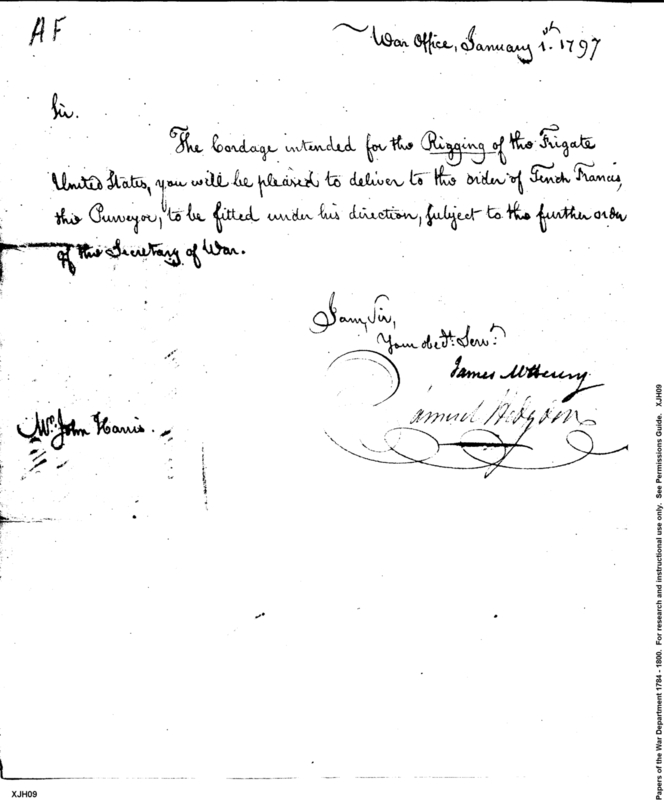 AF
War Office, January 1st. 1797
Sir.
The Cordage intended for the Rigging of the Frigate
United States, you will be pleased to deliver to the order of Tench Francis,
the Purveyor, to be fitted under his direction, subject to the further order
of the Secretary of War.
I am, Sir,
Your obedt. Servt.
James McHenry
Samuel Hodgdon
Mr. John Harris.
XJH09
Papers of the War Department 1784 - 1800. For research and instructional use only. See Permissions Guide. XJH09